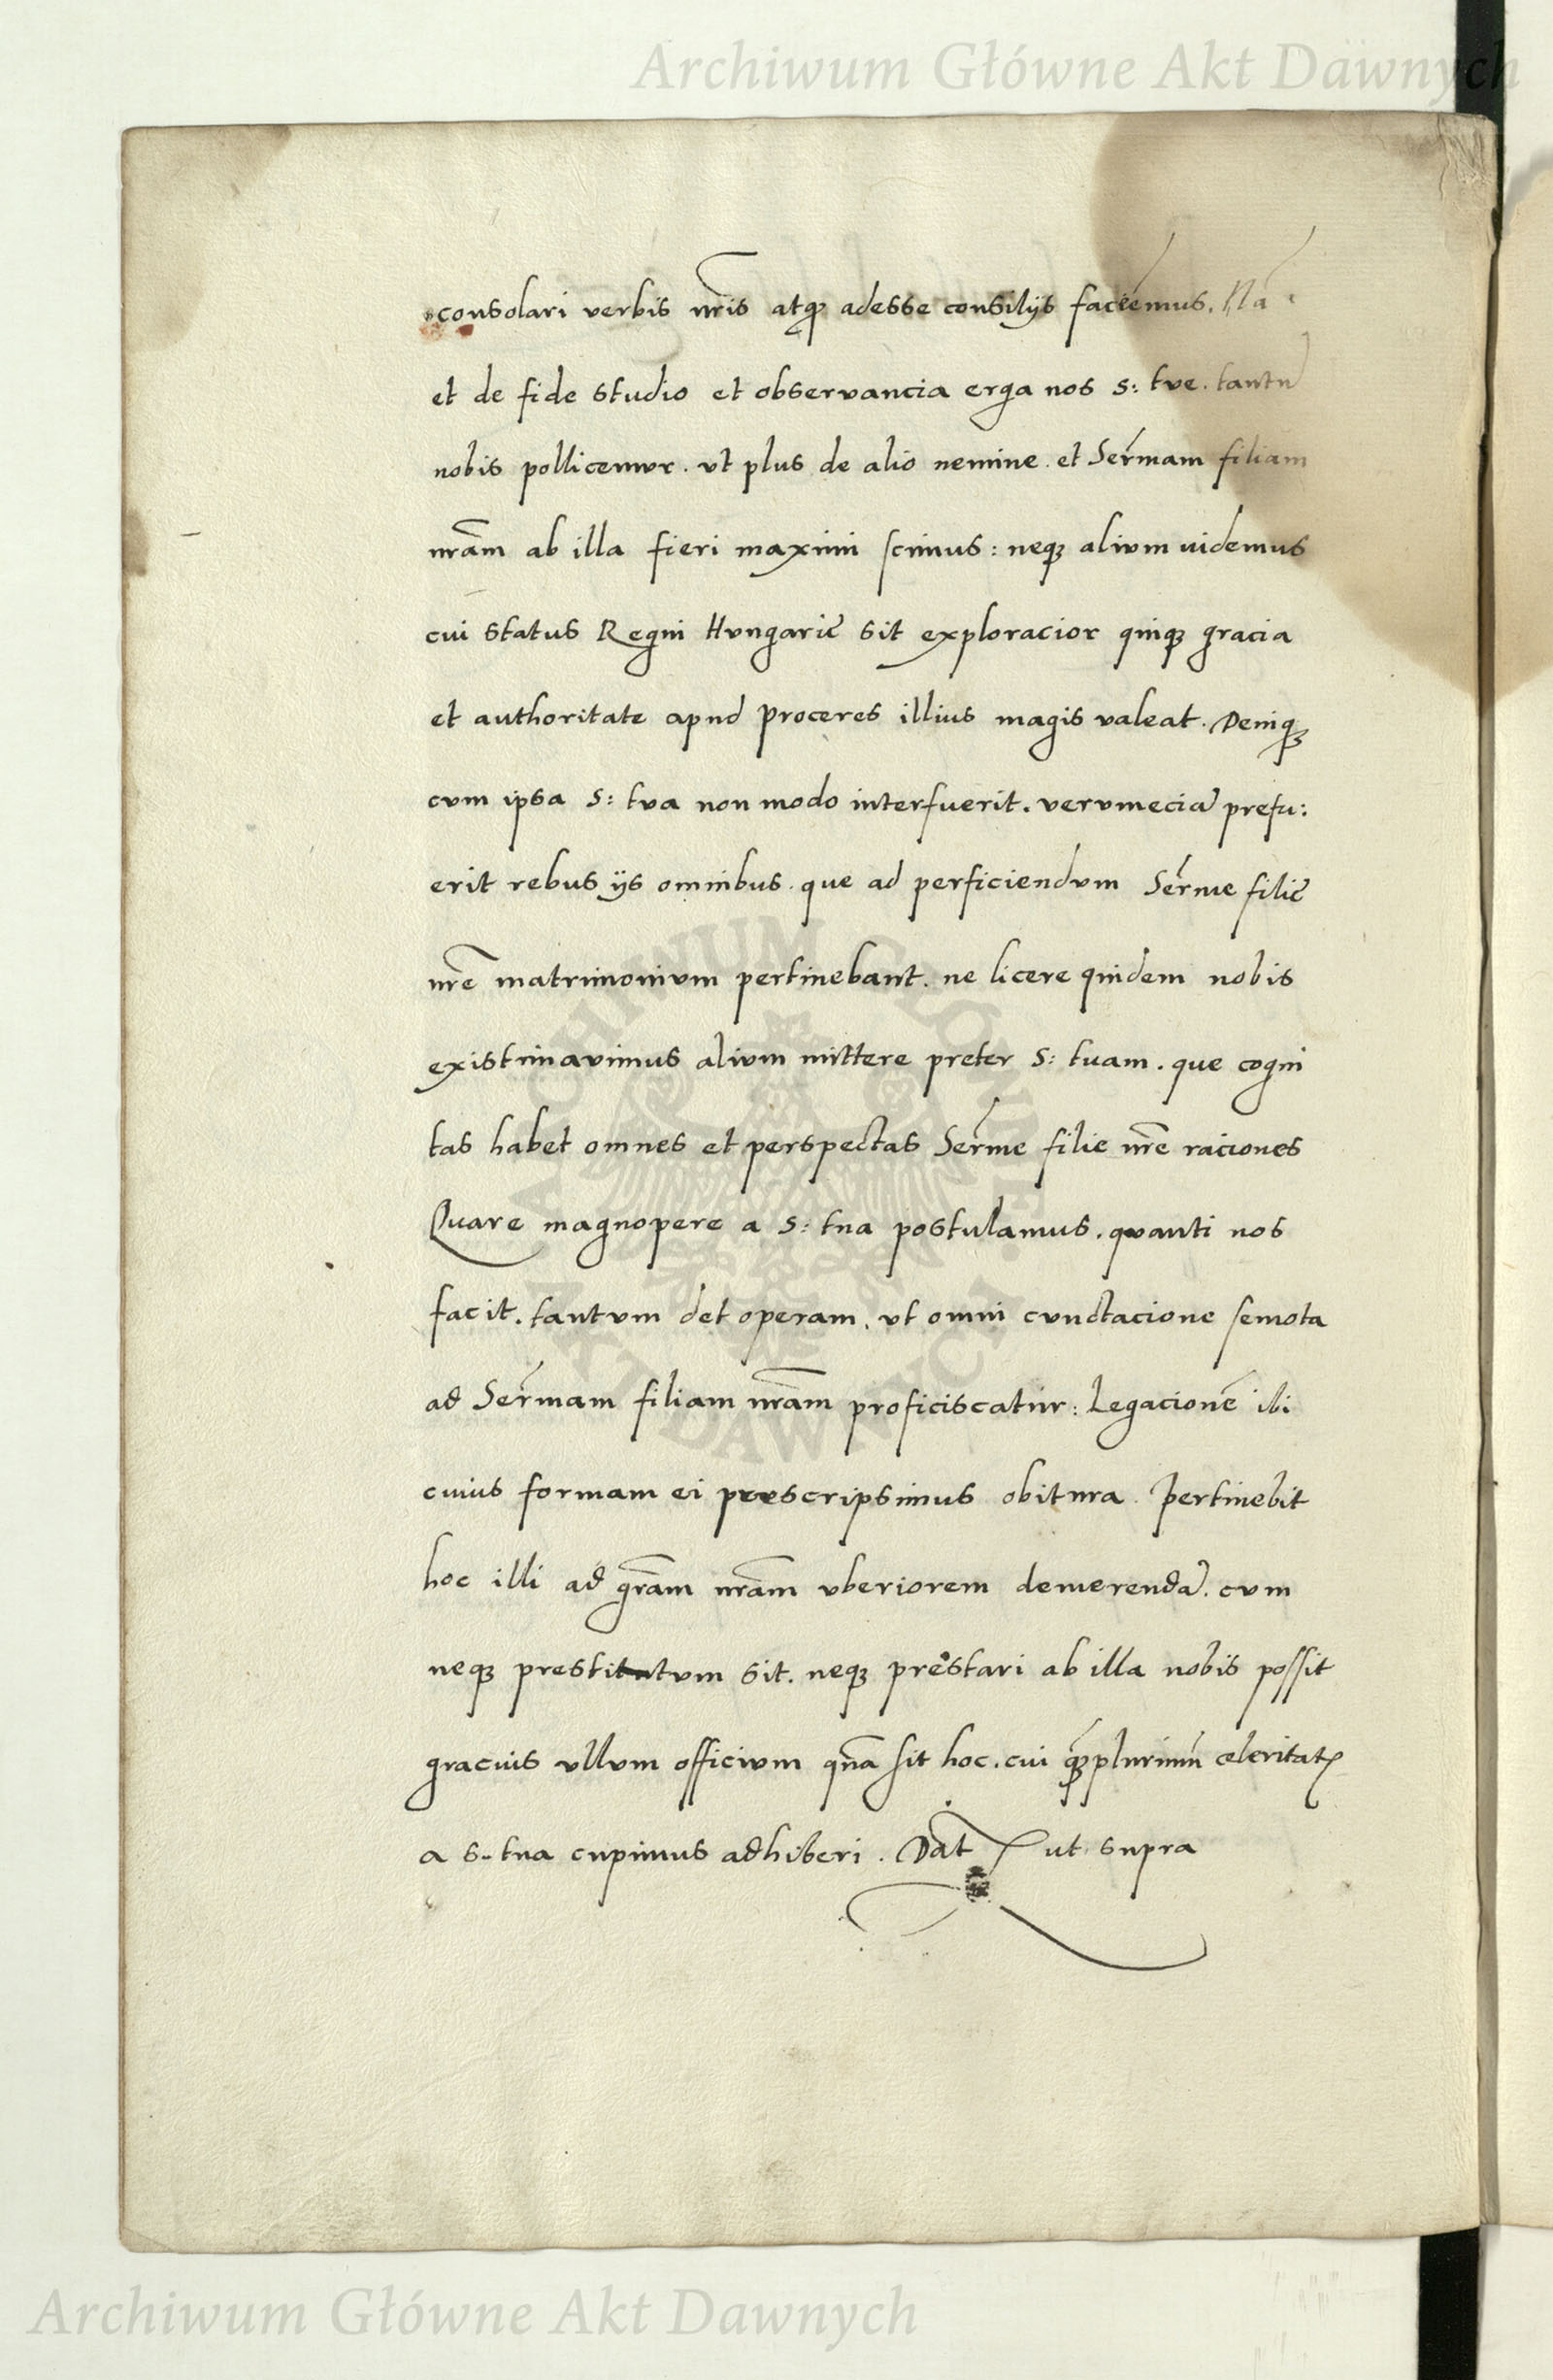 Archiwum Główne Akt Dawnych
consolari verbis nr̃is atqꝫ adesse consilijs faciemus. Nã
et de fide studio et observancia erga nos s: tve. tantũ
nobis pollicemvr. vt plus de alio nemine. et Serr̃mam filiam
nr̃am ab illa fieri maximi scimus: neqꝫ alivm uidemus
cui status Regni Hvngarię sit exploracior quiqꝫ gracia
et authoritate apud proceres illius magis valeat. Deniqꝫ
cvm ipsa s: tva non modo interfuerit. vervmeciã prefu:
erit rebus ijs omnibus. que ad perficiendvm Ser̃me filię
nr̃e matrimonivm pertinebant. ne licere quidem nobis
existimavimus alivm mittere preter s: tuam. que cogni
tas habet omnes et perspectas Ser̃me filie nr̃e raciones
Quare magnopere a s: tua postulamus. qvanti nos
facit. tantvm det operam. vt omni cvnctacione semota
ad Ser̃mam filiam nr̃am proficiscatur: Legacionẽ ibi
cuius formam ei prescripsimus obitura. Pertinebit
hoc illi ad gr̃am nr̃am vberiorem demerendã. cvm
neqꝫ prestitutvm sit. neqꝫ prestari ab illa nobis possit
gracius vllvm officivm quã sit hoc. cui qꝫplurimũ celeritatꝭ
a s. tua cupimus adhiberi. Dat̃ ut supra
ARCHIWUM GŁÓWNE
AKT DAWNYCH
Archiwum Główne Akt Dawnych